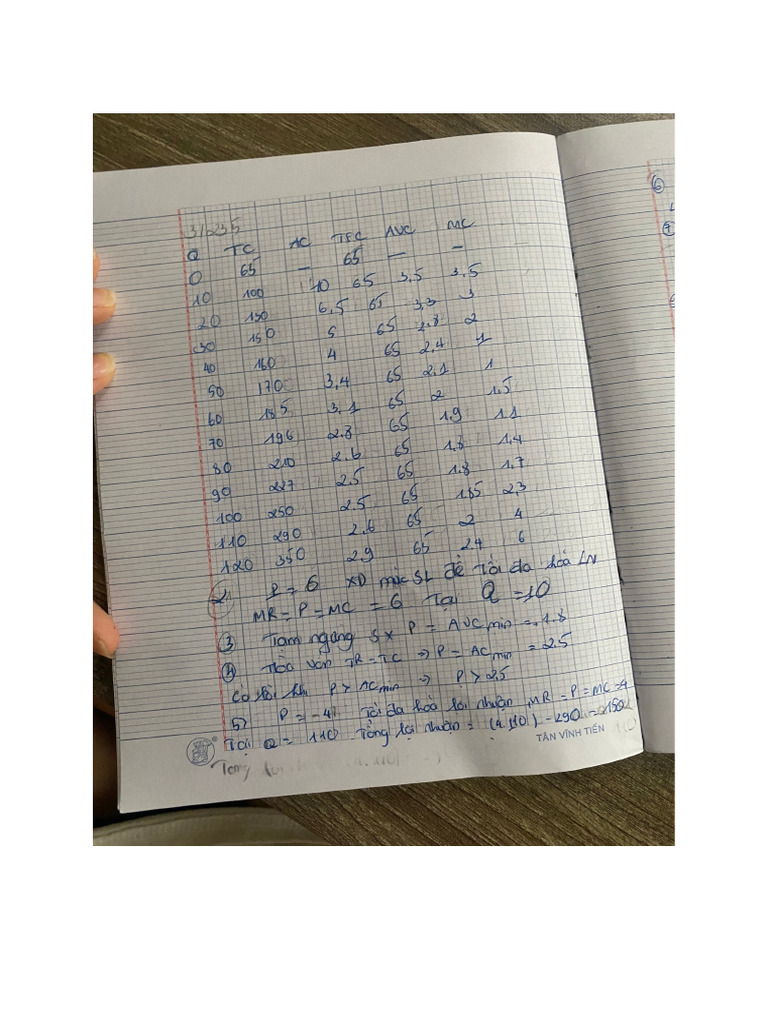 3/235
Q TC AC TFC AVC MC
0 65 — 65 — —
10 100 10 65 3,5 3.5
20 130 6,5 65 3,3 3
30 150 5 65 2.8 2
40 160 4 65 2,4 1
50 170 3,4 65 2,1 1
60 185 3,1 65 2 1.5
70 196 2.8 65 1.9 1.1
80 210 2.6 65 1.8 1.4
90 227 2.5 65 1.8 1.7
100 250 2.5 65 1.85 2,3
110 290 2.6 65 2 4
120 350 2.9 65 2.4 6
2. P = 6 XĐ mức SL để tối đa hoá LN
MR = P = MC = 6 Tại Q = 10
3 Tạm ngưng SX P = AVC min = 1.8
4 Hòa vốn TR = TC ⇒ P = AC min = 2.5
Có lời khi P > AC min ⇒ P > 2,5
5) P = 4 Tối đa hoá lợi nhuận MR = P = MC = 4
Tại Q = 110 Tổng lợi nhuận = (4.110) - 290 = 150
TÂN VĨNH TIẾN
Tổng
6